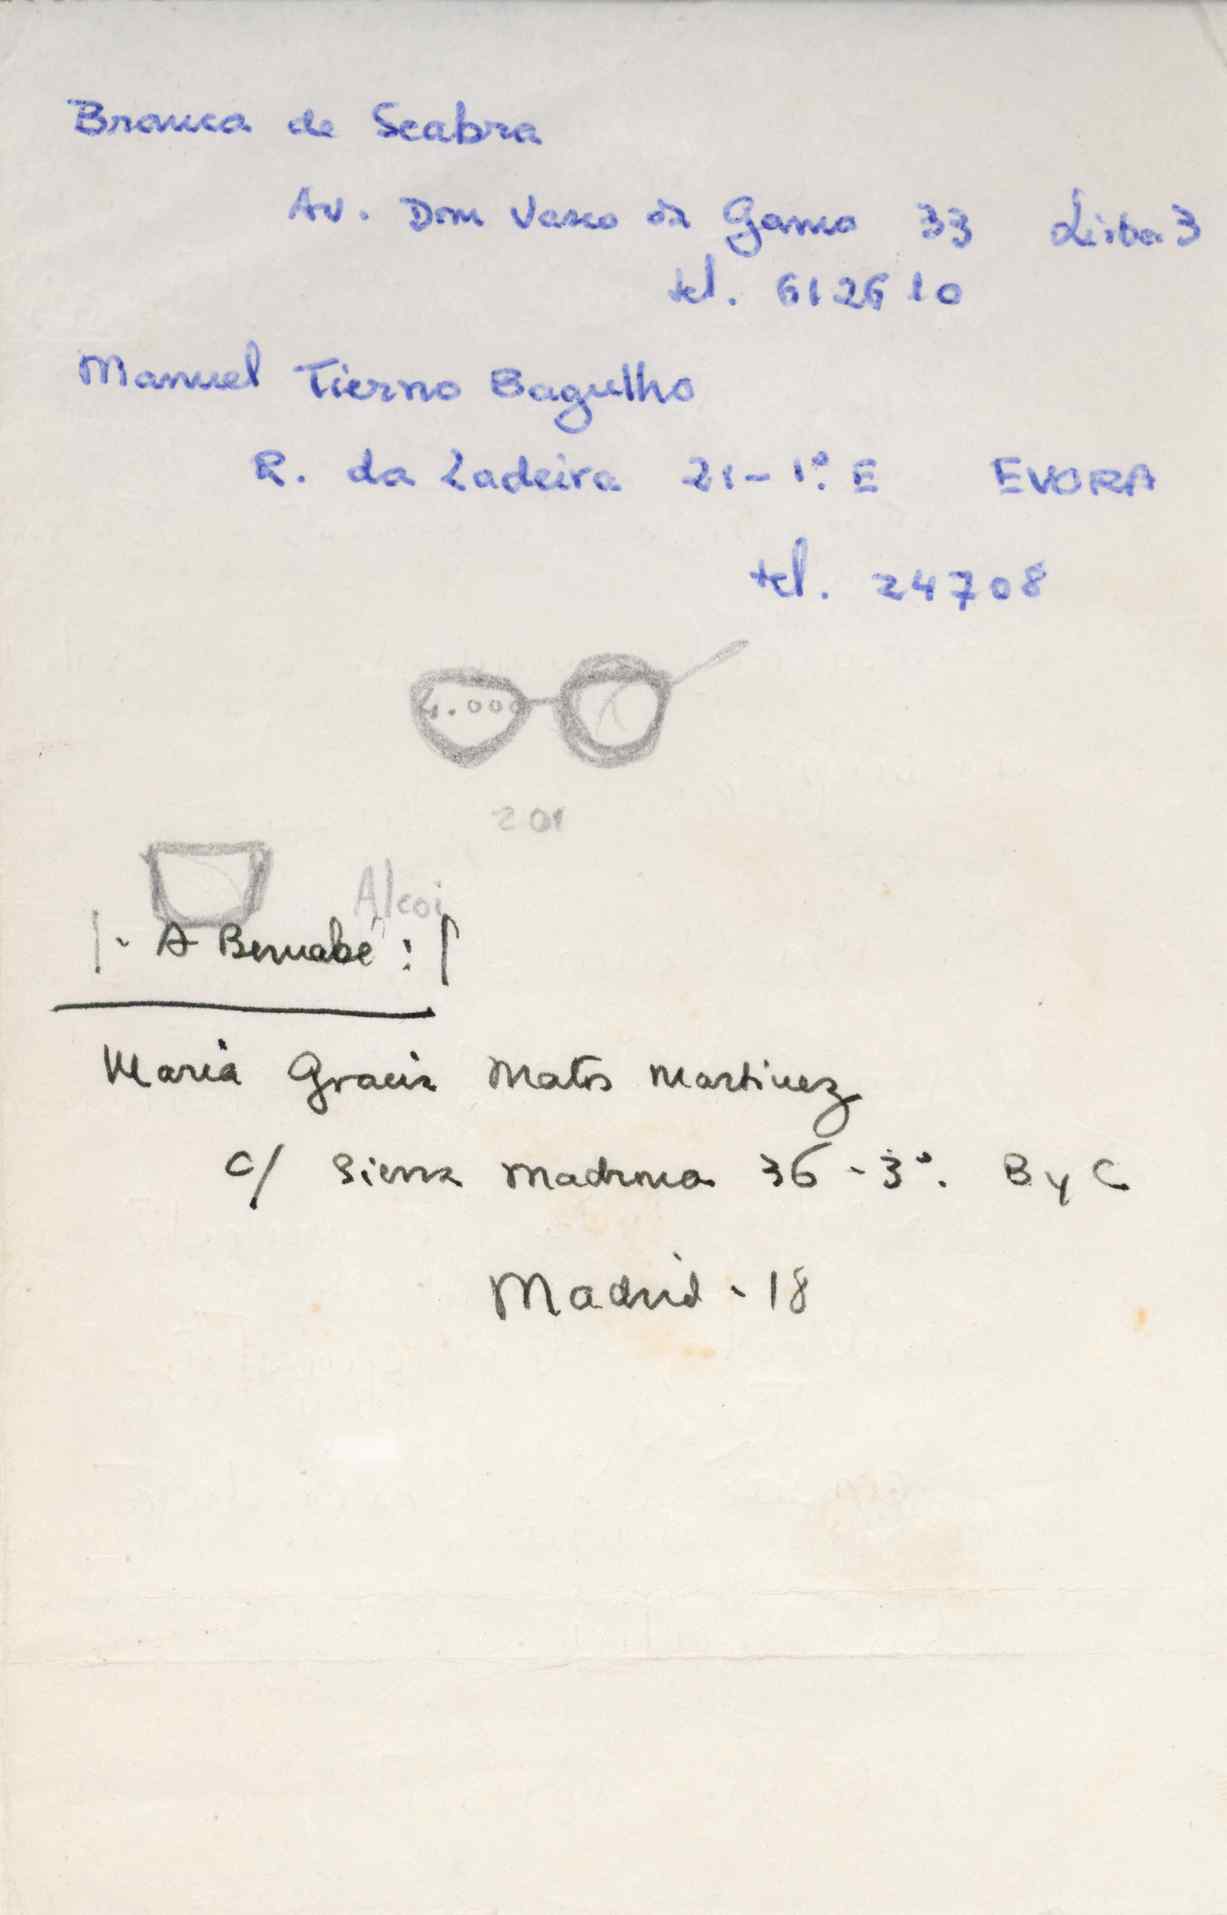 Branca de Seabra
Av. Dom Vasco da Gama 33 Lisboa 3
tel. 612610
Manuel Tierno Bagulho
R. da Ladeira 21-1º E EVORA
tel. 24708
4.000
201
Alcoi
- A Bernabé :
Maria Gracia Matos Martinez
c/ Sierra Madrona 36-3º. B y C
Madrid - 18